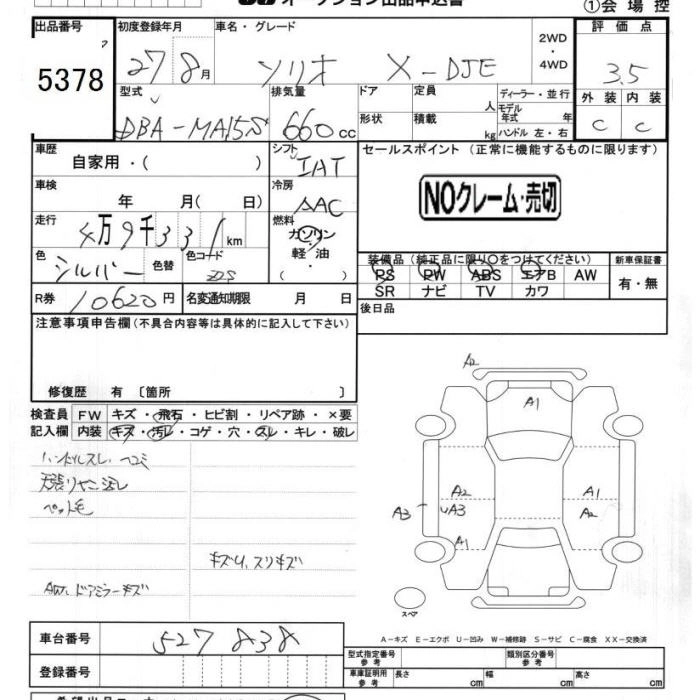 オークション出品申込書 ①会場控
出品番号 初度登録年月 車名・グレード 2WD・4WD 評価点
5378 27年8月 ソリオ X-DJE 3.5
型式 排気量 ドア 定員 人 ディーラー・並行 外装 内装
DBA-MA15S 660cc 形状 積載 kg モデル年式 年 ハンドル 左・右 C C
車歴 自家用・( ) シフト IAT セールスポイント (正常に機能するものに限ります)
車検 年 月( 日) 冷房 AAC NOクレーム・売切
走行 4万9千331km 燃料 ガソリン 軽油 ・( )
色 シルバー 色替 色コード 装備品 (純正品に限り○をつけてください) 新車保証書
PS PW ABS エアB AW 有・無
SR ナビ TV カワ
R券 10620円 名変通知期限 月 日 後日品
注意事項申告欄(不具合内容等は具体的に記入して下さい)
修復歴 有 〔箇所 〕
検査員 FW キズ・飛石・ヒビ割・リペア跡・×要
記入欄 内装 キズ・汚レ・コゲ・穴・スレ・キレ・破レ
ハンドルスレ、ヘコミ
天張りヤニ汚レ
ペット毛
キズU、スリキズ
AW、ドアミラーキズ
A2
A1
A2 A1
A3 UA3 A2
A1
スペア
A-キズ E-エクボ U-凹み W-補修跡 S-サビ C-腐食 XX-交換済
車台番号 527838 型式指定番号 参考 類別区分番号 参考
登録番号 車庫証明用 参考 長さ cm 幅 cm 高さ cm